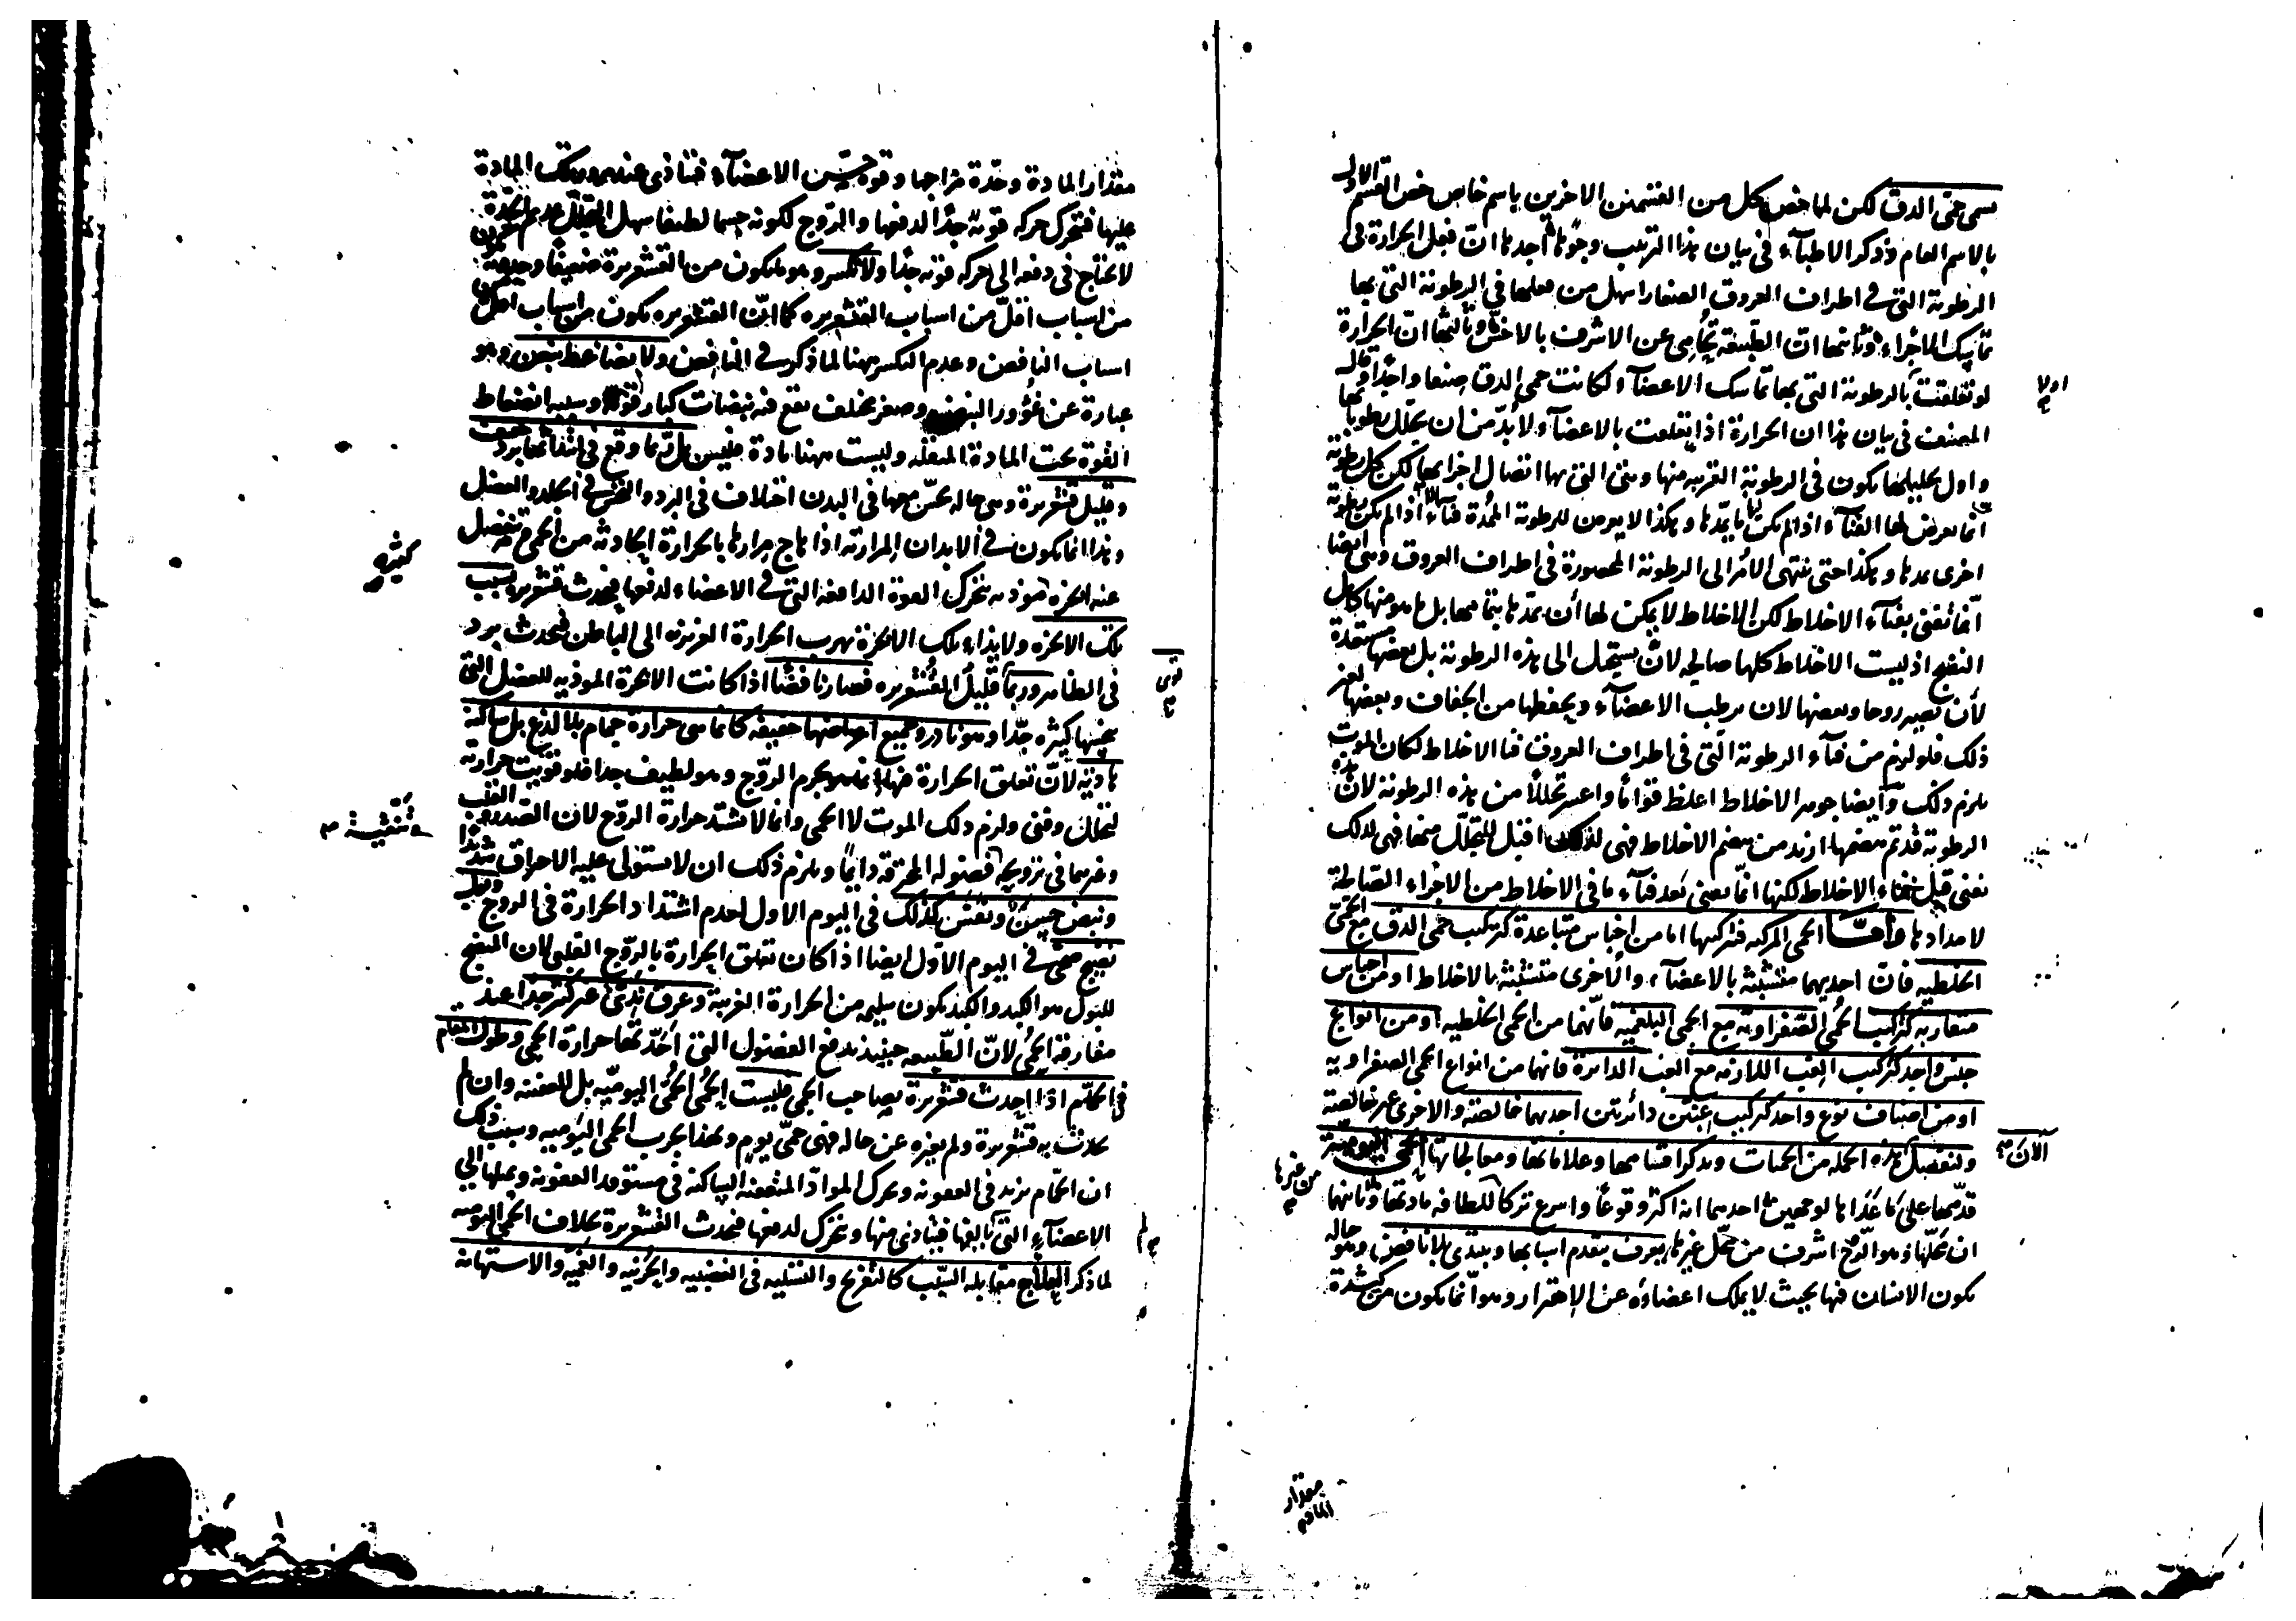 يسمى حمى الدق لكن لما خص كل من القسمين الاخرين باسم خاص خص القسم الاول
بالاسم العام وذكر الاطباء في بيان هذا الترتيب وجوها احدها ان فعل الحرارة في
الرطوبة التي في اطراف العروق الصغار اسهل من فعلها في الرطوبة التي بها
تماسك الاجزاء وثانيها ان الطبيعة تحامي عن الاشرف بالاخس وثالثها ان الحرارة
لو تعلقت بالرطوبة التي بها تماسك الاعضاء لكانت حمى الدق صنفا واحدا وقال
المصنف في بيان هذا ان الحرارة اذا تعلقت بالاعضاء لا بد من ان تحلل رطوباتها
واول تحليلها يكون في الرطوبة القريبة منها وهي التي بها اتصال اجزائها لكن كل رطوبة
انما يعرض لها الفناء اذا لم يكن لها ما يمدها وهكذا لا يعرض للرطوبة الممدة فناء اذا لم يكن رطوبة
اخرى تمدها وهكذا حتى ينتهي الامر الى الرطوبة المحصورة في اطراف العروق وهي ايضا
انما تفنى بفناء الاخلاط لكن الاخلاط لا يمكن لها ان تمدها بتمامها بل ما هو منها كامل
النضج اذ ليست الاخلاط كلها صالحة لان يستحيل الى هذه الرطوبة بل بعضها مستعدة
لان تصير روحا وبعضها لان يرطب الاعضاء ويحفظها من الجفاف وبعضها لغير
ذلك فلو لزم من فناء الرطوبة التي في اطراف العروق فنا الاخلاط لكان الموت
يلزم ذلك وايضا جوهر الاخلاط اغلظ قواما واعسر تحللا من هذه الرطوبة لان هذه
الرطوبة قد تم هضمها ازيد من هضم الاخلاط فهي لذلك اقبل للتحلل منها فهي لذلك
تفنى قبل فناء الاخلاط لكنها انما تفنى بعد فناء ما في الاخلاط من الاجزاء الصالحة
لامدادها واما الحمى المركبة فتركيبها اما من اجناس متباعدة كتركيب حمى الدق مع الحمى
الخلطية فان احديهما متشبثة بالاعضاء والاخرى متشبثة بالاخلاط او من اجناس
متقاربة كتركيب الحمى الصفراوية مع الحمى البلغمية فانهما من الحمى الخلطية او من انواع
جنس واحد كتركيب الغب اللازمة مع الغب الدائرة فانهما من انواع الحمى الصفراوية
او من اصناف نوع واحد كتركيب غبين دائرتين احديهما خالصة والاخرى غير خالصة
ولنفصل هذه الجملة من الحميات ونذكر اقسامها وعلاماتها ومعالجاتها الحمى اليومية
قدمها على ما عداها لوجهين احدهما انه اكثر وقوعا واسرع تركا للطافة مادتها وثانيهما
ان محلها وهو الروح اشرف من محل غيرها يعرف بتقدم اسبابها ويبتدى بلا نافض وهو حالة
يكون الانسان فيها بحيث لا يملك اعضاءه عن الاهتزاز وهو انما يكون من شدة
اولا
الآن
من غيرها
مقدار
المادة
مقدار المادة وحدة مزاجها وقوة حس الاعضاء فتتاذى عند مرور تلك المادة
عليها فتتحرك حركة قوية جدا لدفعها والروح لكونه جسما لطيفا سهل التحلل عديم الحدة
لا تحتاج في دفعه الى حركة قوية جدا ولا تكسر وهو ما يكون من القشعريرة ضعيفا
من اسباب اقل من اسباب القشعريرة كما ان القشعريرة تكون من اسباب اقل من
اسباب النافض وعدم التكسر ههنا لما ذكر في النافض ولا بضاغط نبض وهو
عبارة عن غؤور النبض وصغر مختلف تقع فيه نبضات كبار قوة وسببه انضغاط
القوة تحت المادة المثقلة وليست ههنا مادة فليس بل ربما وقع في ابتدائها برد خفيف
وقليل قشعريرة وهي حالة يحس معها في البدن اختلاف في البرد والنخس في الجلد والعضل
وهذا انما يكون في الابدان المرارية اذا هاج مرارها بالحرارة الحادثة من الحمى فتنفصل
عنه ابخرة موذية تتحرك القوة الدافعة التي في الاعضاء لدفعها فيحدث قشعريرة بسبب
تلك الابخرة ولايذاء تلك الابخرة تهرب الحرارة الغريزية الى الباطن فيحدث برد
في الظاهر وربما قليل القشعريرة فصار نافضا اذا كانت الابخرة الموذية للعضل التي
نخسها كثيرة جدا وهو نادر وجميع اعراضها خفيفة كانما هي حرارة حمام بلا لذع بل ساكنة
هادية لان تعلق الحرارة فيها انما هو بجرم الروح وهو لطيف جدا فلو قويت حرارته
لتحلل وفنى ولزم ذلك الموت لا الحمى وانما لا تشتد حرارة الروح لان الصدر والقلب
وغيرهما في ترويحه فضوله المحترقة دائما ويلزم ذلك ان لا يستولى عليه الاحراق شديدا
ونبض حسن ونفس كذلك في اليوم الاول لعدم اشتداد الحرارة في الروح
نضيج حتى في اليوم الاول ايضا اذا كان تعلق الحرارة بالروح القلبي لان المنضج
للبول هو الكبد والكبد يكون سليمه من الحرارة الغريبة وعرق ندى غير كثير جدا عند
مفارقة الحمى لان الطبيعة حينئذ تدفع الفضول التي احدثها حرارة الحمى وطول المقام
في الحمام اذا احدث قشعريرة بصاحب الحمى فليست الحمى الحمى اليومية بل للعفنة وان لم
يحدث به قشعريرة ولم يغيره عن حاله فهي حمى يوم وبهذا يجرب الحمى اليومية وسبب ذلك
ان الحمام يزيد في العفونة ويحرك المواد المتعفنة الساكنة في مستوقد العفونة ويميلها الى
الاعضاء التي تاليها فيتاذى منها وتتحرك لدفعها فيحدث القشعريرة بخلاف الحمى اليومية
لما ذكر العلاج مقابلة السبب كالتفريح والتسلية في الغضبية والحزنية والغمية والاستهانة
كثيرة
قوى
وتنقية